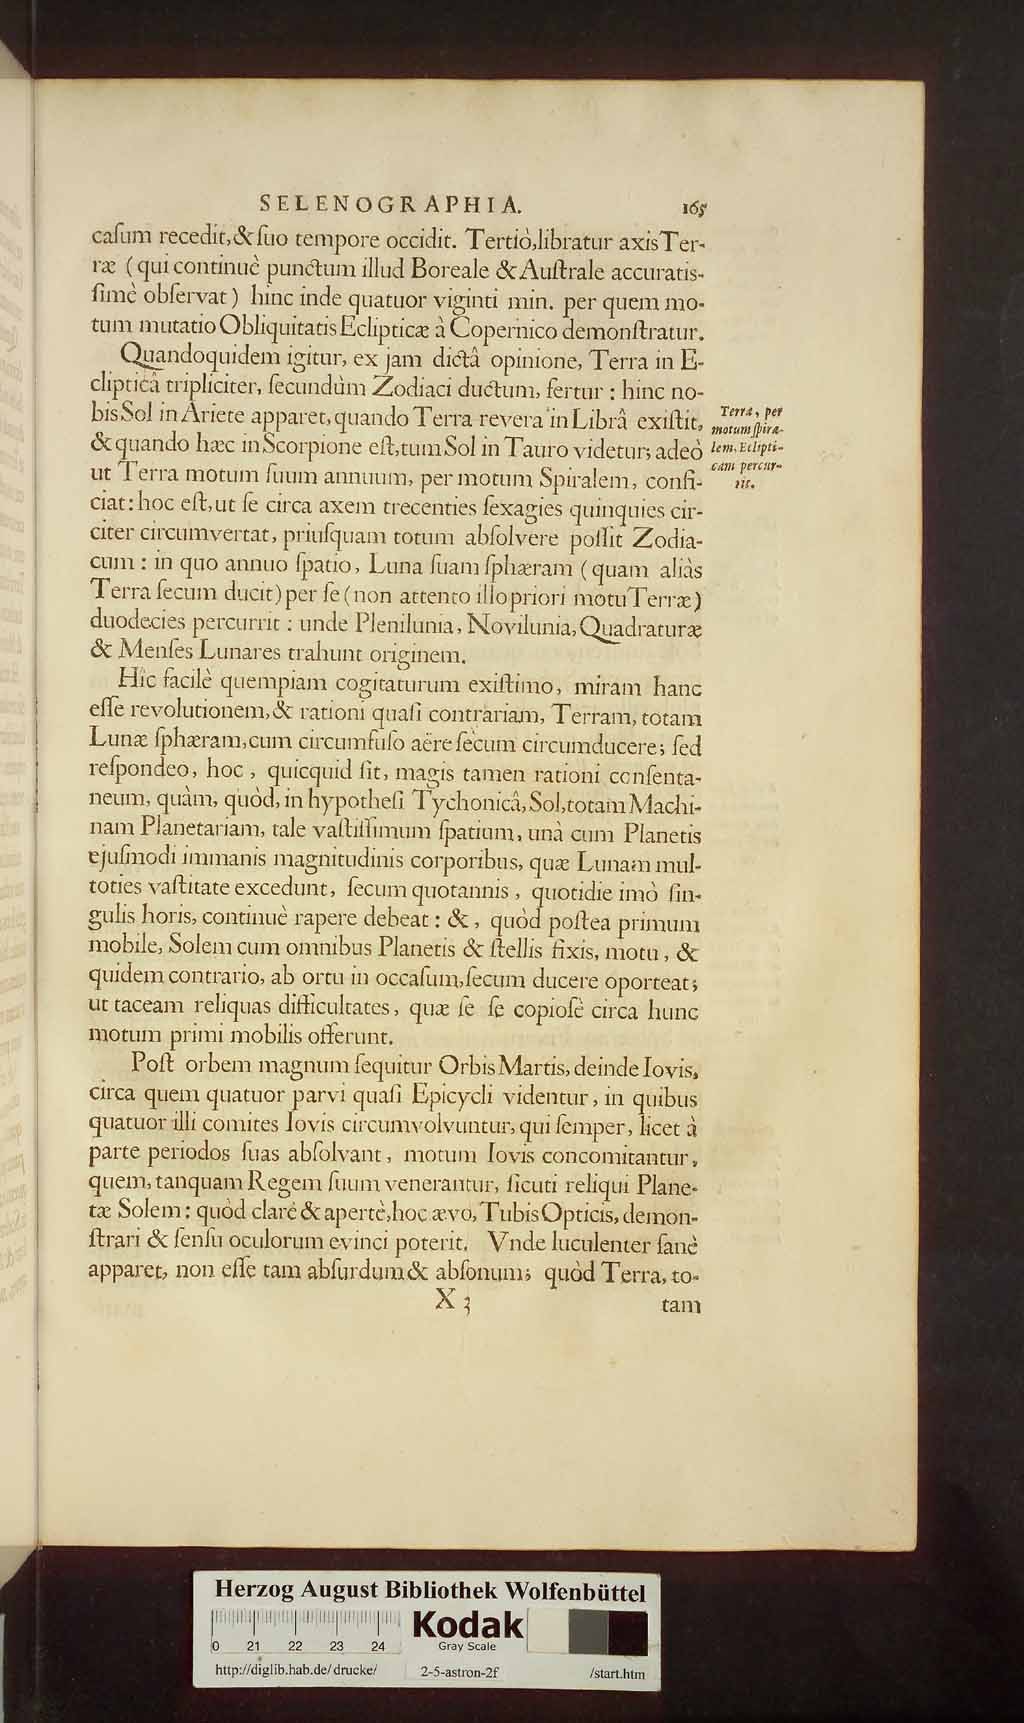 SELENOGRAPHIA. 165
caſum recedit, & ſuo tempore occidit. Tertiò, libratur axis Ter-
ræ (qui continuè punctum illud Boreale & Auſtrale accuratis-
ſimè obſervat) hinc inde quatuor viginti min. per quem mo-
tum mutatio Obliquitatis Eclipticæ à Copernico demonſtratur.
Quandoquidem igitur, ex jam dictâ opinione, Terra in E-
clipticâ tripliciter, ſecundùm Zodiaci ductum, fertur: hinc no-
bis Sol in Ariete apparet, quando Terra revera in Librâ exiſtit,
& quando hæc in Scorpione eſt, tum Sol in Tauro videtur; adeò
ut Terra motum ſuum annuum, per motum Spiralem, confi-
ciat: hoc eſt, ut ſe circa axem trecenties ſexagies quinquies cir-
citer circumvertat, priuſquam totum abſolvere poſſit Zodia-
cum: in quo annuo ſpatio, Luna ſuam ſphæram (quam aliàs
Terra ſecum ducit) per ſe (non attento illo priori motu Terræ)
duodecies percurrit: unde Plenilunia, Novilunia, Quadraturæ
& Menſes Lunares trahunt originem.
Terra, per
motum ſpira-
lem, Eclipti-
cam percur-
rit.
Hîc facilè quempiam cogitaturum exiſtimo, miram hanc
eſſe revolutionem, & rationi quaſi contrariam, Terram, totam
Lunæ ſphæram, cum circumfuſo aëre ſecum circumducere; ſed
reſpondeo, hoc, quicquid ſit, magis tamen rationi conſenta-
neum, quàm, quòd, in hypotheſi Tychonicâ, Sol, totam Machi-
nam Planetariam, tale vaſtiſſimum ſpatium, unà cum Planetis
ejuſmodi immanis magnitudinis corporibus, quæ Lunam mul-
toties vaſtitate excedunt, ſecum quotannis, quotidie imò ſin-
gulis horis, continuè rapere debeat: &, quòd poſtea primum
mobile, Solem cum omnibus Planetis & ſtellis fixis, motu, &
quidem contrario, ab ortu in occaſum, ſecum ducere oporteat;
ut taceam reliquas difficultates, quæ ſe ſe copioſè circa hunc
motum primi mobilis offerunt.
Poſt orbem magnum ſequitur Orbis Martis, deinde Iovis,
circa quem quatuor parvi quaſi Epicycli videntur, in quibus
quatuor illi comites Iovis circumvolvuntur, qui ſemper, licet à
parte periodos ſuas abſolvant, motum Iovis concomitantur,
quem, tanquam Regem ſuum venerantur, ſicuti reliqui Plane-
tæ Solem: quòd clarè & apertè, hoc ævo, Tubis Opticis, demon-
ſtrari & ſenſu oculorum evinci poterit. Vnde luculenter ſanè
apparet, non eſſe tam abſurdum & abſonum; quòd Terra, to-
X 3 tam
Herzog August Bibliothek Wolfenbüttel
0 21 22 23 24
Kodak
Gray Scale
http://diglib.hab.de/drucke/ 2-5-astron-2f /start.htm